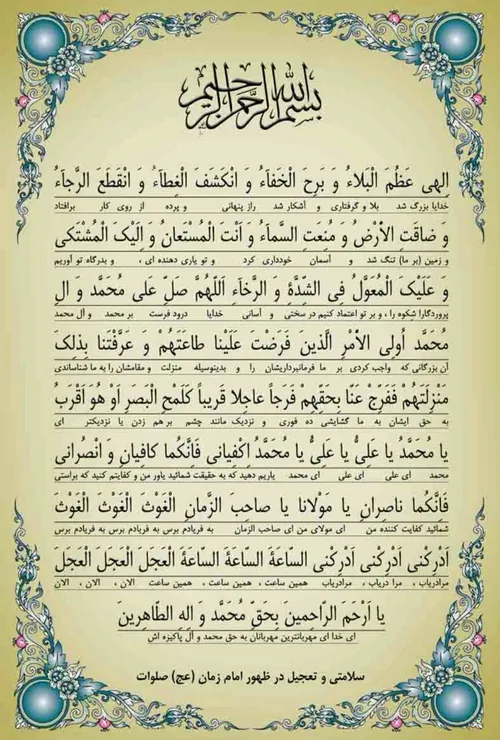 بسم الله الرحمن الرحیم
اِلهی عَظُمَ الْبَلاءُ وَ بَرِحَ الْخَفاءُ وَ انْکَشَفَ الْغِطاءُ وَ انْقَطَعَ الرَّجاءُ
خدایا بزرگ شد بلا و گرفتاری و آشکار شد راز پنهانی و پرده از روی کار برافتاد
وَ ضاقَتِ الاْرْضُ وَ مُنِعَتِ السَّماءُ وَ اَنْتَ الْمُسْتَعانُ وَ اِلَیکَ الْمُشْتَکی
و زمین (بر ما) تنگ شد و آسمان خودداری کرد و تو یاری دهنده ای ، و بدرگاه تو آوریم
وَ عَلَیکَ الْمُعَوَّلُ فِی الشِّدَّةِ وَ الرَّخاءِ اَللّهُمَّ صَلِّ عَلی مُحَمَّد وَ الِ
پروردگارا شکوه را ، و بر تو اعتماد کنیم در سختی و آسانی خدایا درود فرست بر محمد و آل محمد
مُحَمَّد اُولِی الاْمْرِ الَّذینَ فَرَضْتَ عَلَینا طاعَتَهُمْ وَ عَرَّفْتَنا بِذلِکَ
آن بزرگانی که واجب کردی بر ما فرمانبرداریشان را و بدینوسیله منزلت و مقامشان را به ما شناساندی
مَنْزِلَتَهُمْ فَفَرِّجْ عَنّا بِحَقِّهِمْ فَرَجاً عاجِلا قَریباً کَلَمْحِ الْبَصَرِ اَوْ هُوَ اَقْرَبُ
به حق ایشان به ما گشایشی ده فوری و نزدیک مانند چشم بر هم زدن یا نزدیکتر ای
یا مُحَمَّدُ یا عَلِیُّ یا عَلِیُّ یا مُحَمَّدُ اِکْفِیانی فَاِنَّکُما کافِیانِ وَ انْصُرانی
محمد ای علی ای علی ای محمد یاریم دهید که به حقیقت شمائید یاور من و کفایتم کنید که براستی
فَاِنَّکُما ناصِرانِ یا مَوْلانا یا صاحِبَ الزَّمانِ الْغَوْثَ الْغَوْثَ الْغَوْثَ
شمائید کفایت کننده من ای مولای من ای صاحب الزمان به فریادم برس به فریادم برس به فریادم برس
اَدْرِکْنی اَدْرِکْنی اَدْرِکْنی السّاعَةَ السّاعَةَ السّاعَةَ الْعَجَلَ الْعَجَلَ الْعَجَلَ
مرادریاب ، مرا دریاب ، مرادریاب همین ساعت ، همین ساعت ، همین ساعت الان ، الان ، الان
یا اَرْحَمَ الرّاحِمینَ بِحَقِّ مُحَمَّد وَ الِهِ الطّاهِرینَ
ای خدا ای مهربانترین مهربانان به حق محمد و آل پاکیزه اش
سلامتی و تعجیل در ظهور امام زمان (عج) صلوات